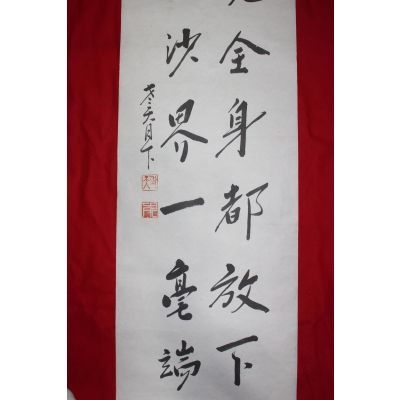 全身都放下
沙界一毫端
老天月下